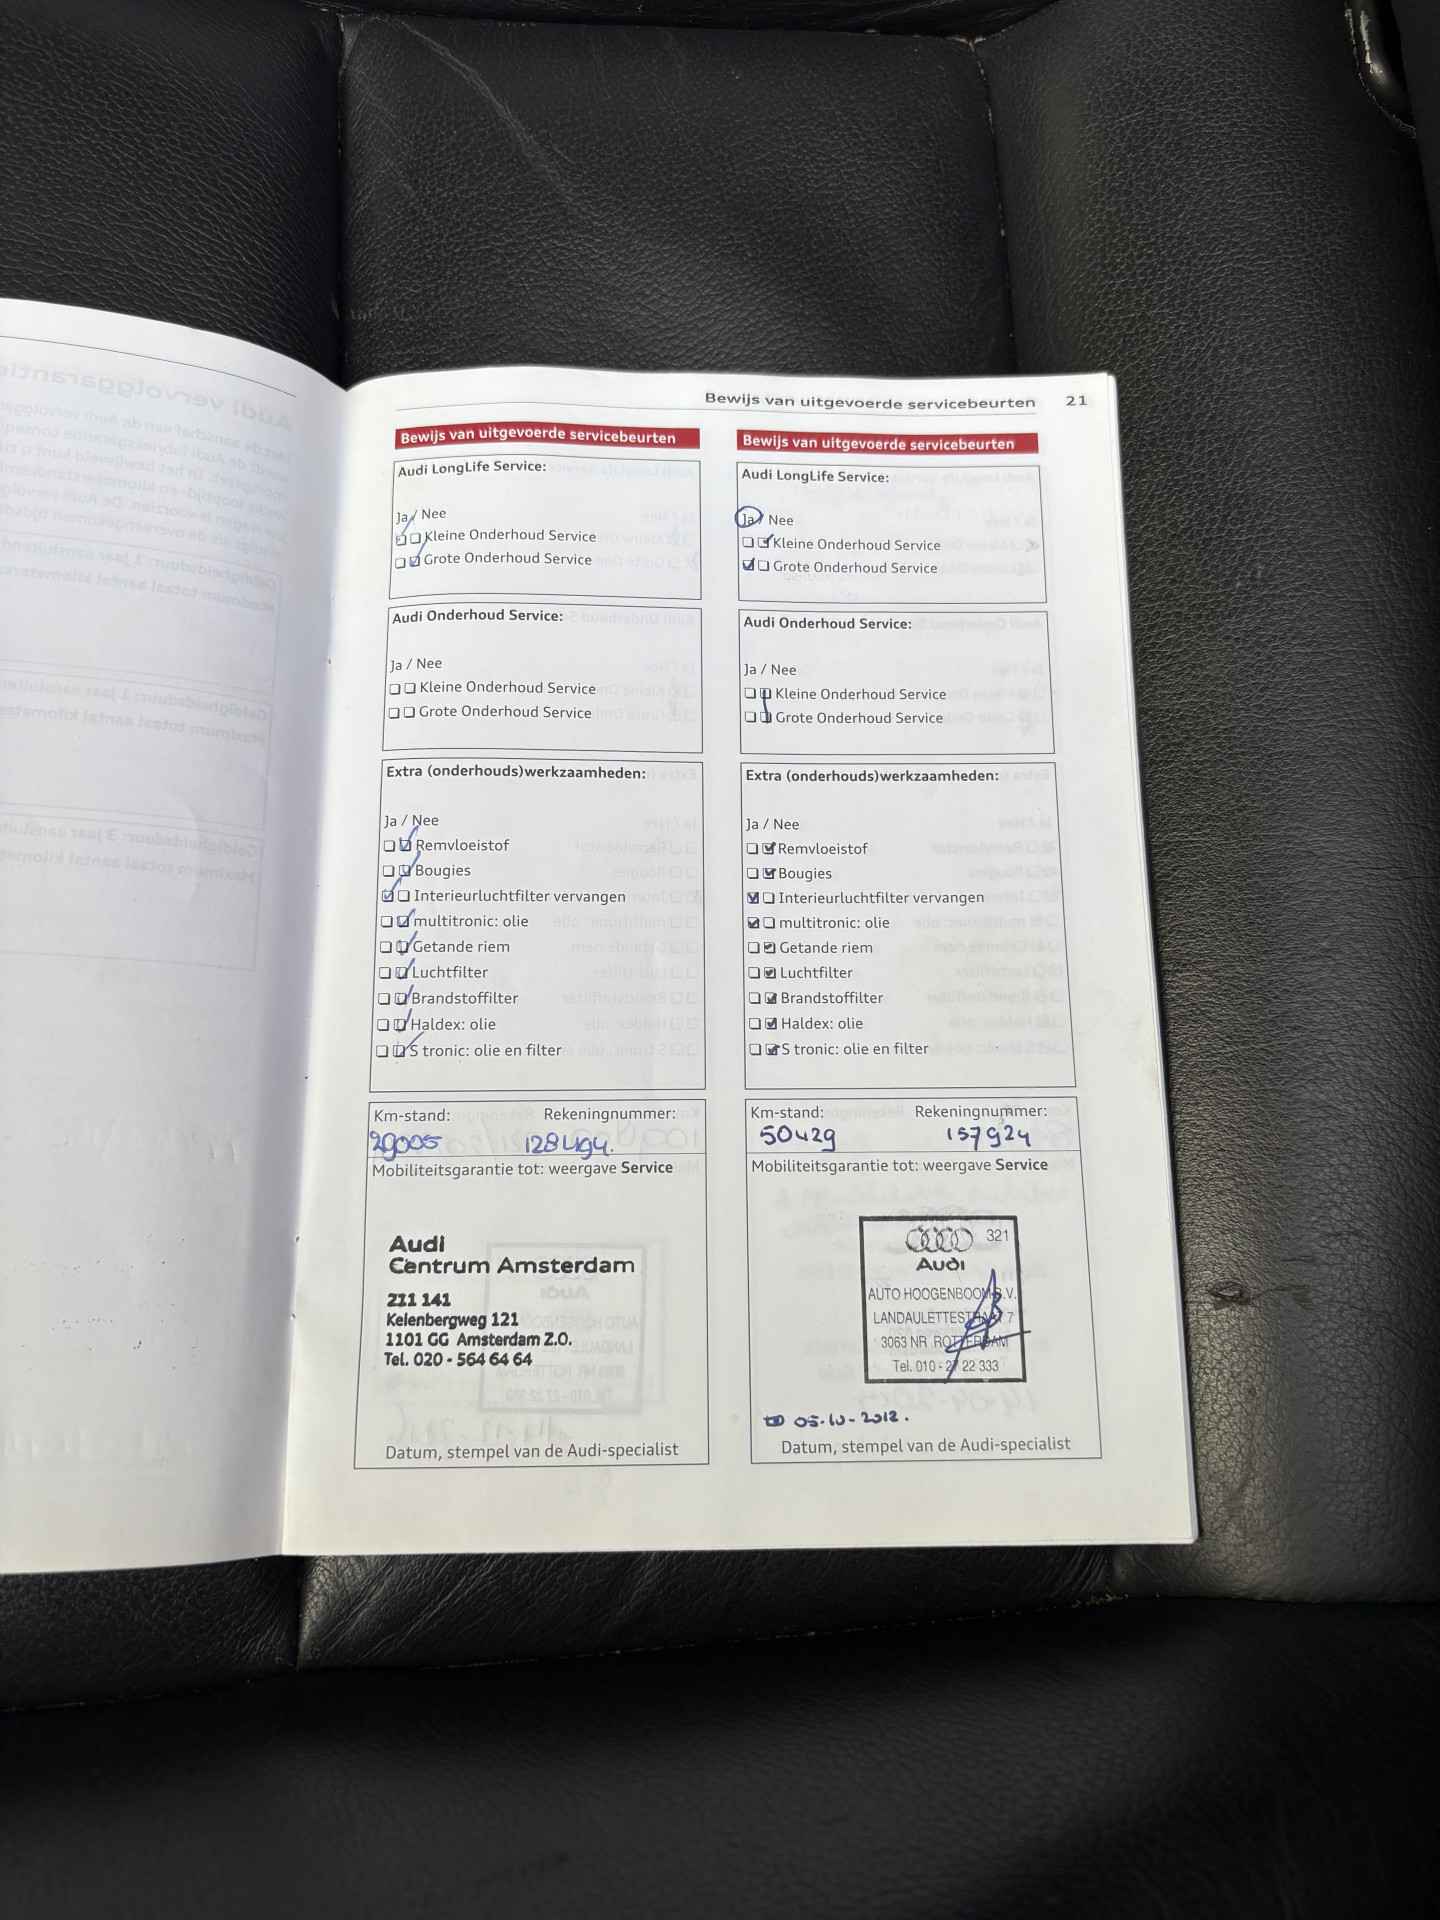 Bewijs van uitgevoerde servicebeurten 21
Bewijs van uitgevoerde servicebeurten
Audi LongLife Service:
Ja / Nee
Kleine Onderhoud Service
Grote Onderhoud Service
Audi Onderhoud Service:
Ja / Nee
Kleine Onderhoud Service
Grote Onderhoud Service
Extra (onderhouds)werkzaamheden:
Ja / Nee
Remvloeistof
Bougies
Interieurluchtfilter vervangen
multitronic: olie
Getande riem
Luchtfilter
Brandstoffilter
Haldex: olie
S tronic: olie en filter
Km-stand: Rekeningnummer:
29005
Mobiliteitsgarantie tot: weergave Service
Audi
Centrum Amsterdam
211 141
Kelenbergweg 121
1101 GG Amsterdam Z.O.
Tel. 020 - 564 64 64
Datum, stempel van de Audi-specialist
Bewijs van uitgevoerde servicebeurten
Audi LongLife Service:
Ja / Nee
Kleine Onderhoud Service
Grote Onderhoud Service
Audi Onderhoud Service:
Ja / Nee
Kleine Onderhoud Service
Grote Onderhoud Service
Extra (onderhouds)werkzaamheden:
Ja / Nee
Remvloeistof
Bougies
Interieurluchtfilter vervangen
multitronic: olie
Getande riem
Luchtfilter
Brandstoffilter
Haldex: olie
S tronic: olie en filter
Km-stand: Rekeningnummer:
50429 157924
Mobiliteitsgarantie tot: weergave Service
321
Audi
AUTO HOOGENBOOM B.V.
LANDAULETTESTRAAT 7
3063 NR ROTTERDAM
Tel. 010 - 27 22 333
05-10-2012.
Datum, stempel van de Audi-specialist